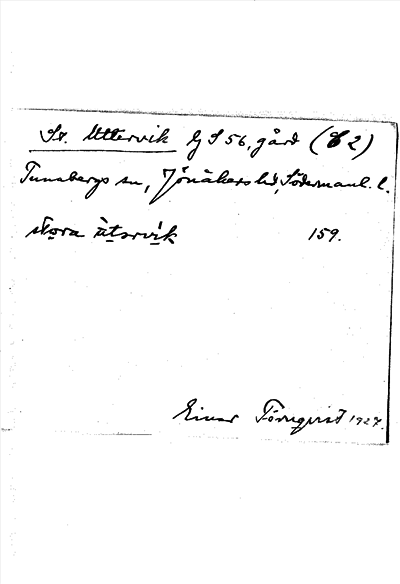 St. Uttervik Gj S 56, gård (C 2)
Tunabergs sn, Jönåkers hd, Södermanl. l.
stora ùtərvìk 159.
Einar Törnqvist 1927.